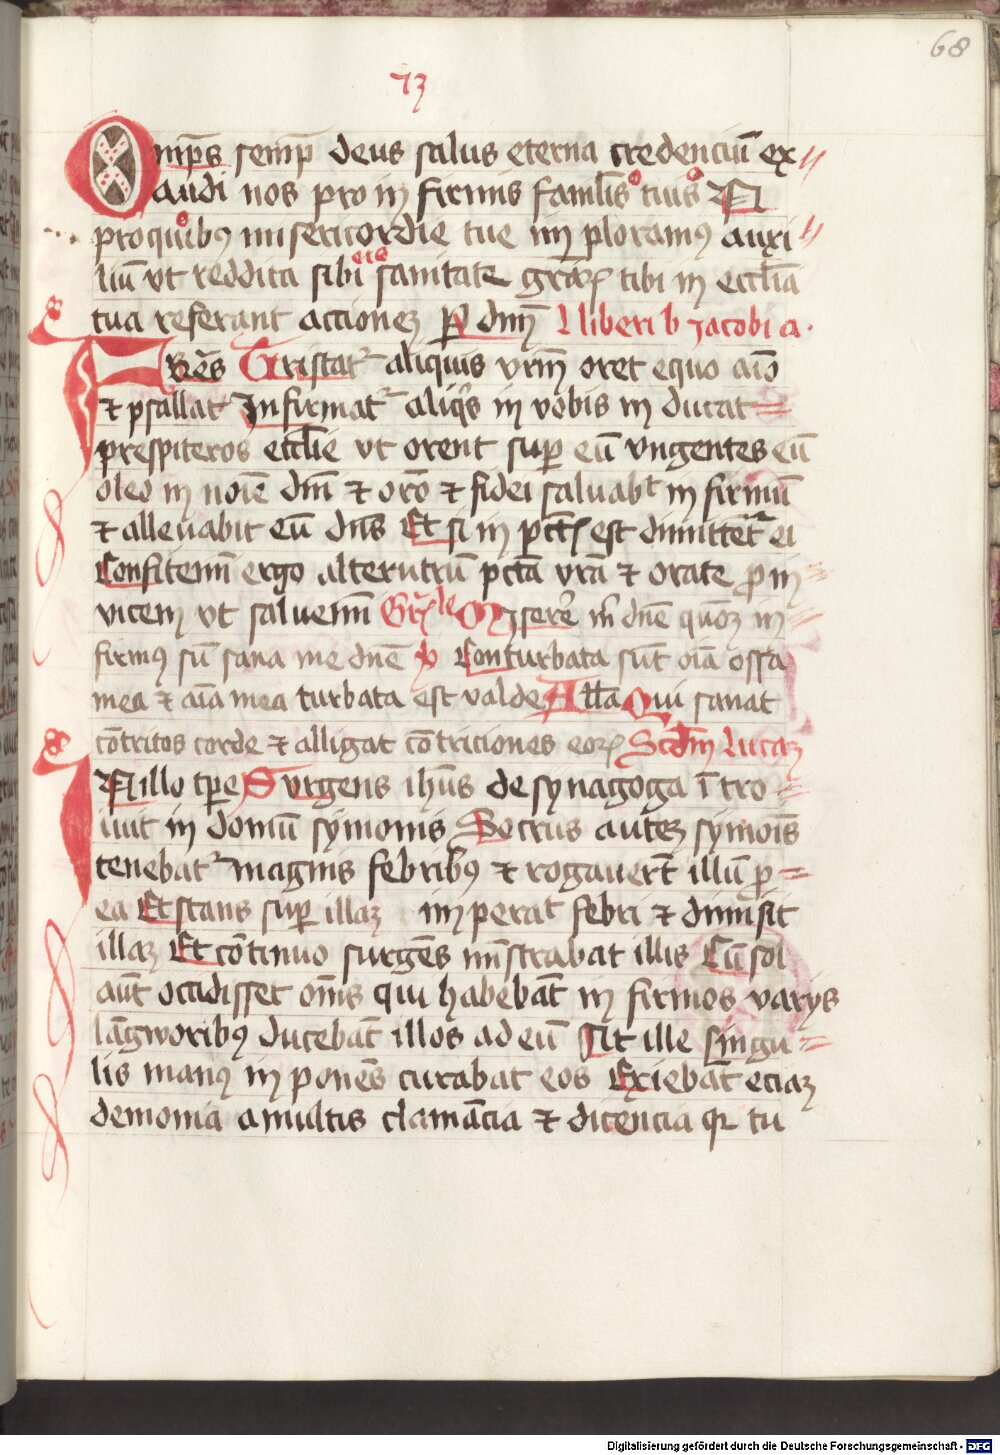 68
73
Omp̄s semp̄ deus salus eterna credenciū ex
audi nos pro in firmis famul̄is tuis N
pro quibꝰ misericordie tue im ploramꝰ auxi
liū vt reddita sibi sanitate gr̄aꝝ tibi in eccl̄ia
tua referant acciones ꝑ dm̄ libri b Jacobi a.
Frēs Tristat᷒ aliquis vr̄m oret equo aīo
et psallat Infirmat᷒ aliq̄s in vobis in ducat
prespiteros eccl̄ie vt orent suꝑ eū vngentes eū
oleo in noīe dn̄i et or̄o et fidei saluabt in firmū
et alleuabit eū dn̄s Et si in pcct̄ꝭ est dimittet᷒ ei
Confitemī ergo alterutrū pctā vrā et orate pro in
vicem vt saluemī Gr̄le Miserēre m̄ dn̄e quōꝫ in
firmꝰ sū sana me dn̄e ℣ Conturbata sūt oīa ossa
mea et aīa mea turbata est valde All̄a Qui sanat
cōtritos corde et alligat cōtriciones eorꝝ Scd̄m Lucaꝫ
IN illo tꝑe Surgens ihūs de synagoga ītro
iuit in domū symonis Socrus auteꝫ symoīs
tenebat᷒ magnis febribꝰ et rogauer̄t illū pro
ea Et stans suꝑ illaꝫ im perat febri et dimisit
illaꝫ Et cōtinuo surgēs mīstrabat illis Cū sol
aūt occidisset om̄s qui habebāt in firmos varys
lāgworibꝰ ducebāt illos ad eū At ille singu
lis manꝰ in ponēs curabat eos Exiebāt eciaꝫ
demonia a multis clamācia et dicencia qꝛ tu
Digitalisierung gefördert durch die Deutsche Forschungsgemeinschaft - DFG